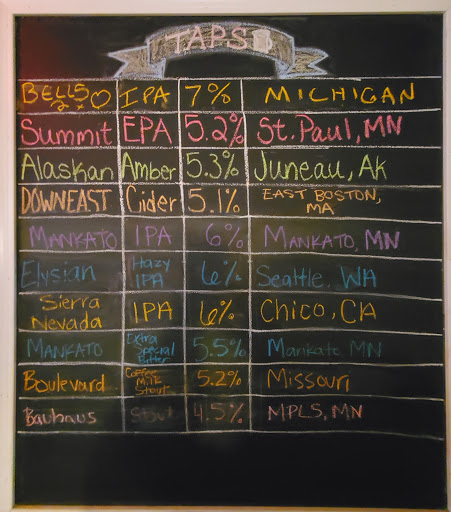 TAPS
BELLS 2x♡ IPA 7% MICHIGAN
Summit EPA 5.2% St. Paul, MN
Alaskan Amber 5.3% Juneau, Ak
DOWNEAST Cider 5.1% EAST BOSTON, MA
MANKATO IPA 6% MANKATO, MN
Elysian Hazy IPA 6% Seattle, WA
Sierra Nevada IPA 6% CHICO, CA
MANKATO Extra Special Bitter 5.5% Mankato MN
Boulevard Coffee Milk Stout 5.2% Missouri
Bauhaus Stout 4.5% MPLS, MN